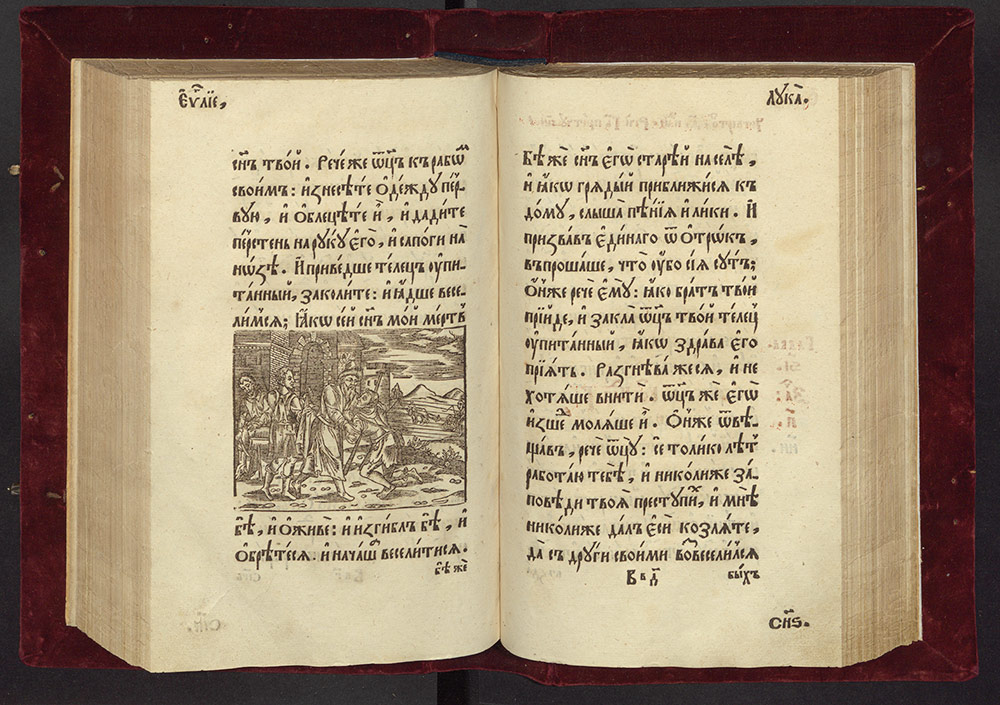 Єѵ҃лїе,
сн҃ъ тво́й. Рече́ же ѿц҃ъ къ рабѡ́м
свои́мъ: и҆знесѣ́те ѻ҆де́жду пе́р-
вую, и҆ ѻ҆блецѣ́те и҆̀, и҆ дади́те
пе́рстень на руку є҆гѡ̀, и҆ сапоги на̀
но́зѣ. И҆ приве́дше теле́цъ ᲂу҆пи-
та́нный, заколи́те: и҆ ꙗ҆́дше весе-
ли́мсѧ; Ꙗ҆́кѡ се́й сн҃ъ мо́й ме́ртв
бѣ̀, и҆ ѻ҆живѐ: и҆ и҆зги́блъ бѣ̀, и҆
ѻ҆брѣ́тесѧ. и҆ нача́ша весели́тисѧ.
бѣ́ же
Лука̀.
Бѣ́ же сн҃ъ є҆гѡ̀ старѣ́й на селѣ̀,
и҆ ꙗ҆́кѡ грѧды́й прибли́жисѧ къ
до́му, слы́ша пѣ́нїѧ и҆ ли́ки. И҆
призва́въ є҆ди́наго ѿ ѻ҆тро́къ,
въпроша́ше, что̀ ᲂу҆́бо сїѧ̀ су́тъ;
Ѻ҆́нже речѐ є҆мꙋ̀: ꙗ҆́ко бра́тъ тво́й
прїи́де, и҆ закла̀ ѿц҃ъ тво́й теле́ц
ᲂу҆пита́нный, ꙗ҆́кѡ здра́ва є҆го̀
прїѧ́тъ. Разгнѣ́ва жесѧ, и҆ не
хотѧ́ше вни́ти. ѿц҃ъ же є҆гѡ̀
и҆зше́д молѧ́ше и҆̀. Ѻ҆́нже ѿвѣ-
ща́въ, речѐ ѿц҃у: се толи́ко лѣ́т
рабо́таю тебѣ̀, и҆ николи́же за́-
повѣди твоѧ̀ преступи́х, и҆ мнѣ̀
николи́же да́лъ є҆сѝ козлѧ́те,
да̀ съ дру́ги свои́ми возвесели́лсѧ
В в д҃
бы́хъ
сн҃ѕ.